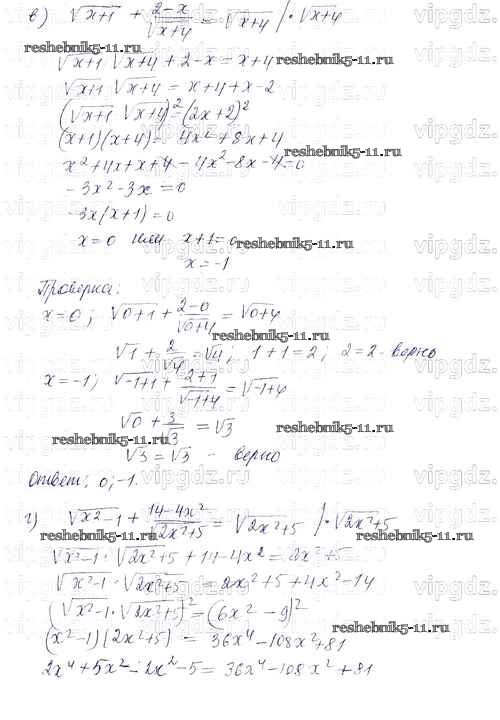 в) √x+1 + 2-x/√x+4 = √x+4 /·√x+4
reshebnik5-11.ru
√x+1 √x+4 + 2-x = x+4
√x+1 √x+4 = x+4+x-2
(√x+1 √x+4)² = (2x+2)²
(x+1)(x+4) = 4x² + 8x + 4
reshebnik5-11.ru
x² + 4x + x + 4 - 4x² - 8x - 4 = 0
-3x² - 3x = 0
-3x(x+1) = 0
x=0 или x+1=0
reshebnik5-11.ru
x=-1
Проверка:
x=0; √0+1 + 2-0/√0+4 = √0+4
reshebnik5-11.ru
√1 + 2/√4 = √4; 1+1=2; 2=2 - верно
x=-1; √-1+1 + 2+1/√-1+4 = √-1+4
√0 + 3/√3 = √3
reshebnik5-11.ru
reshebnik5-11.ru
√3 = √3 - верно
Ответ: 0; -1.
г) √x²-1 + 14-4x²/√2x²+5 = √2x²+5 /·√2x²+5
reshebnik5-11.ru
reshebnik5-11.ru
√x²-1 · √2x²+5 + 14-4x² = 2x²+5
√x²-1 · √2x²+5 = 2x²+5+4x²-14
(√x²-1 · √2x²+5)² = (6x²-9)²
reshebnik5-11.ru
(x²-1)(2x²+5) = 36x⁴-108x²+81
2x⁴+5x²-2x²-5 = 36x⁴-108x²+81